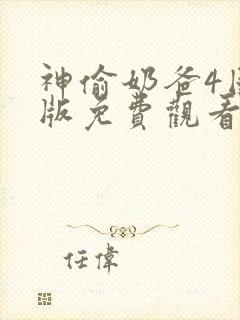 神偷奶爸4
版免費觀看
任偉